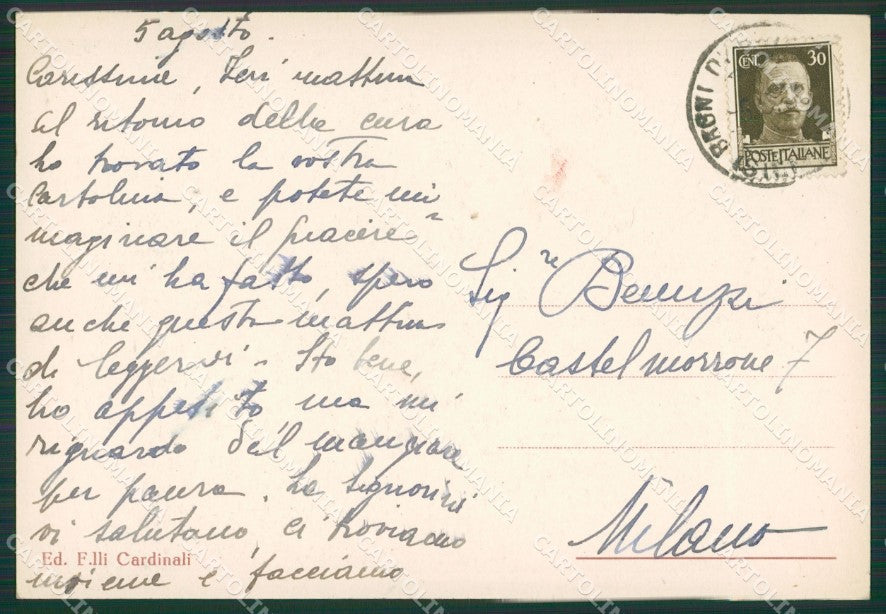 5 agosto.
Carissime, Ieri mattina
al ritorno della cura
ho trovato la vostra
cartolina, e potete im
maginare il piacere
che mi ha fatto, spero
anche questa mattina
di leggervi - Sto bene,
ho appetito ma mi
riguardo dal mangiare
per paura. La Signorini
vi salutano, ci troviamo
insieme e facciamo
Ed. F.lli Cardinali
CENT. 30
POSTE ITALIANE
BAGNI
Sig.re Benuzzi
Castelmorrone 7
Milano
CARTOLINOMANIA